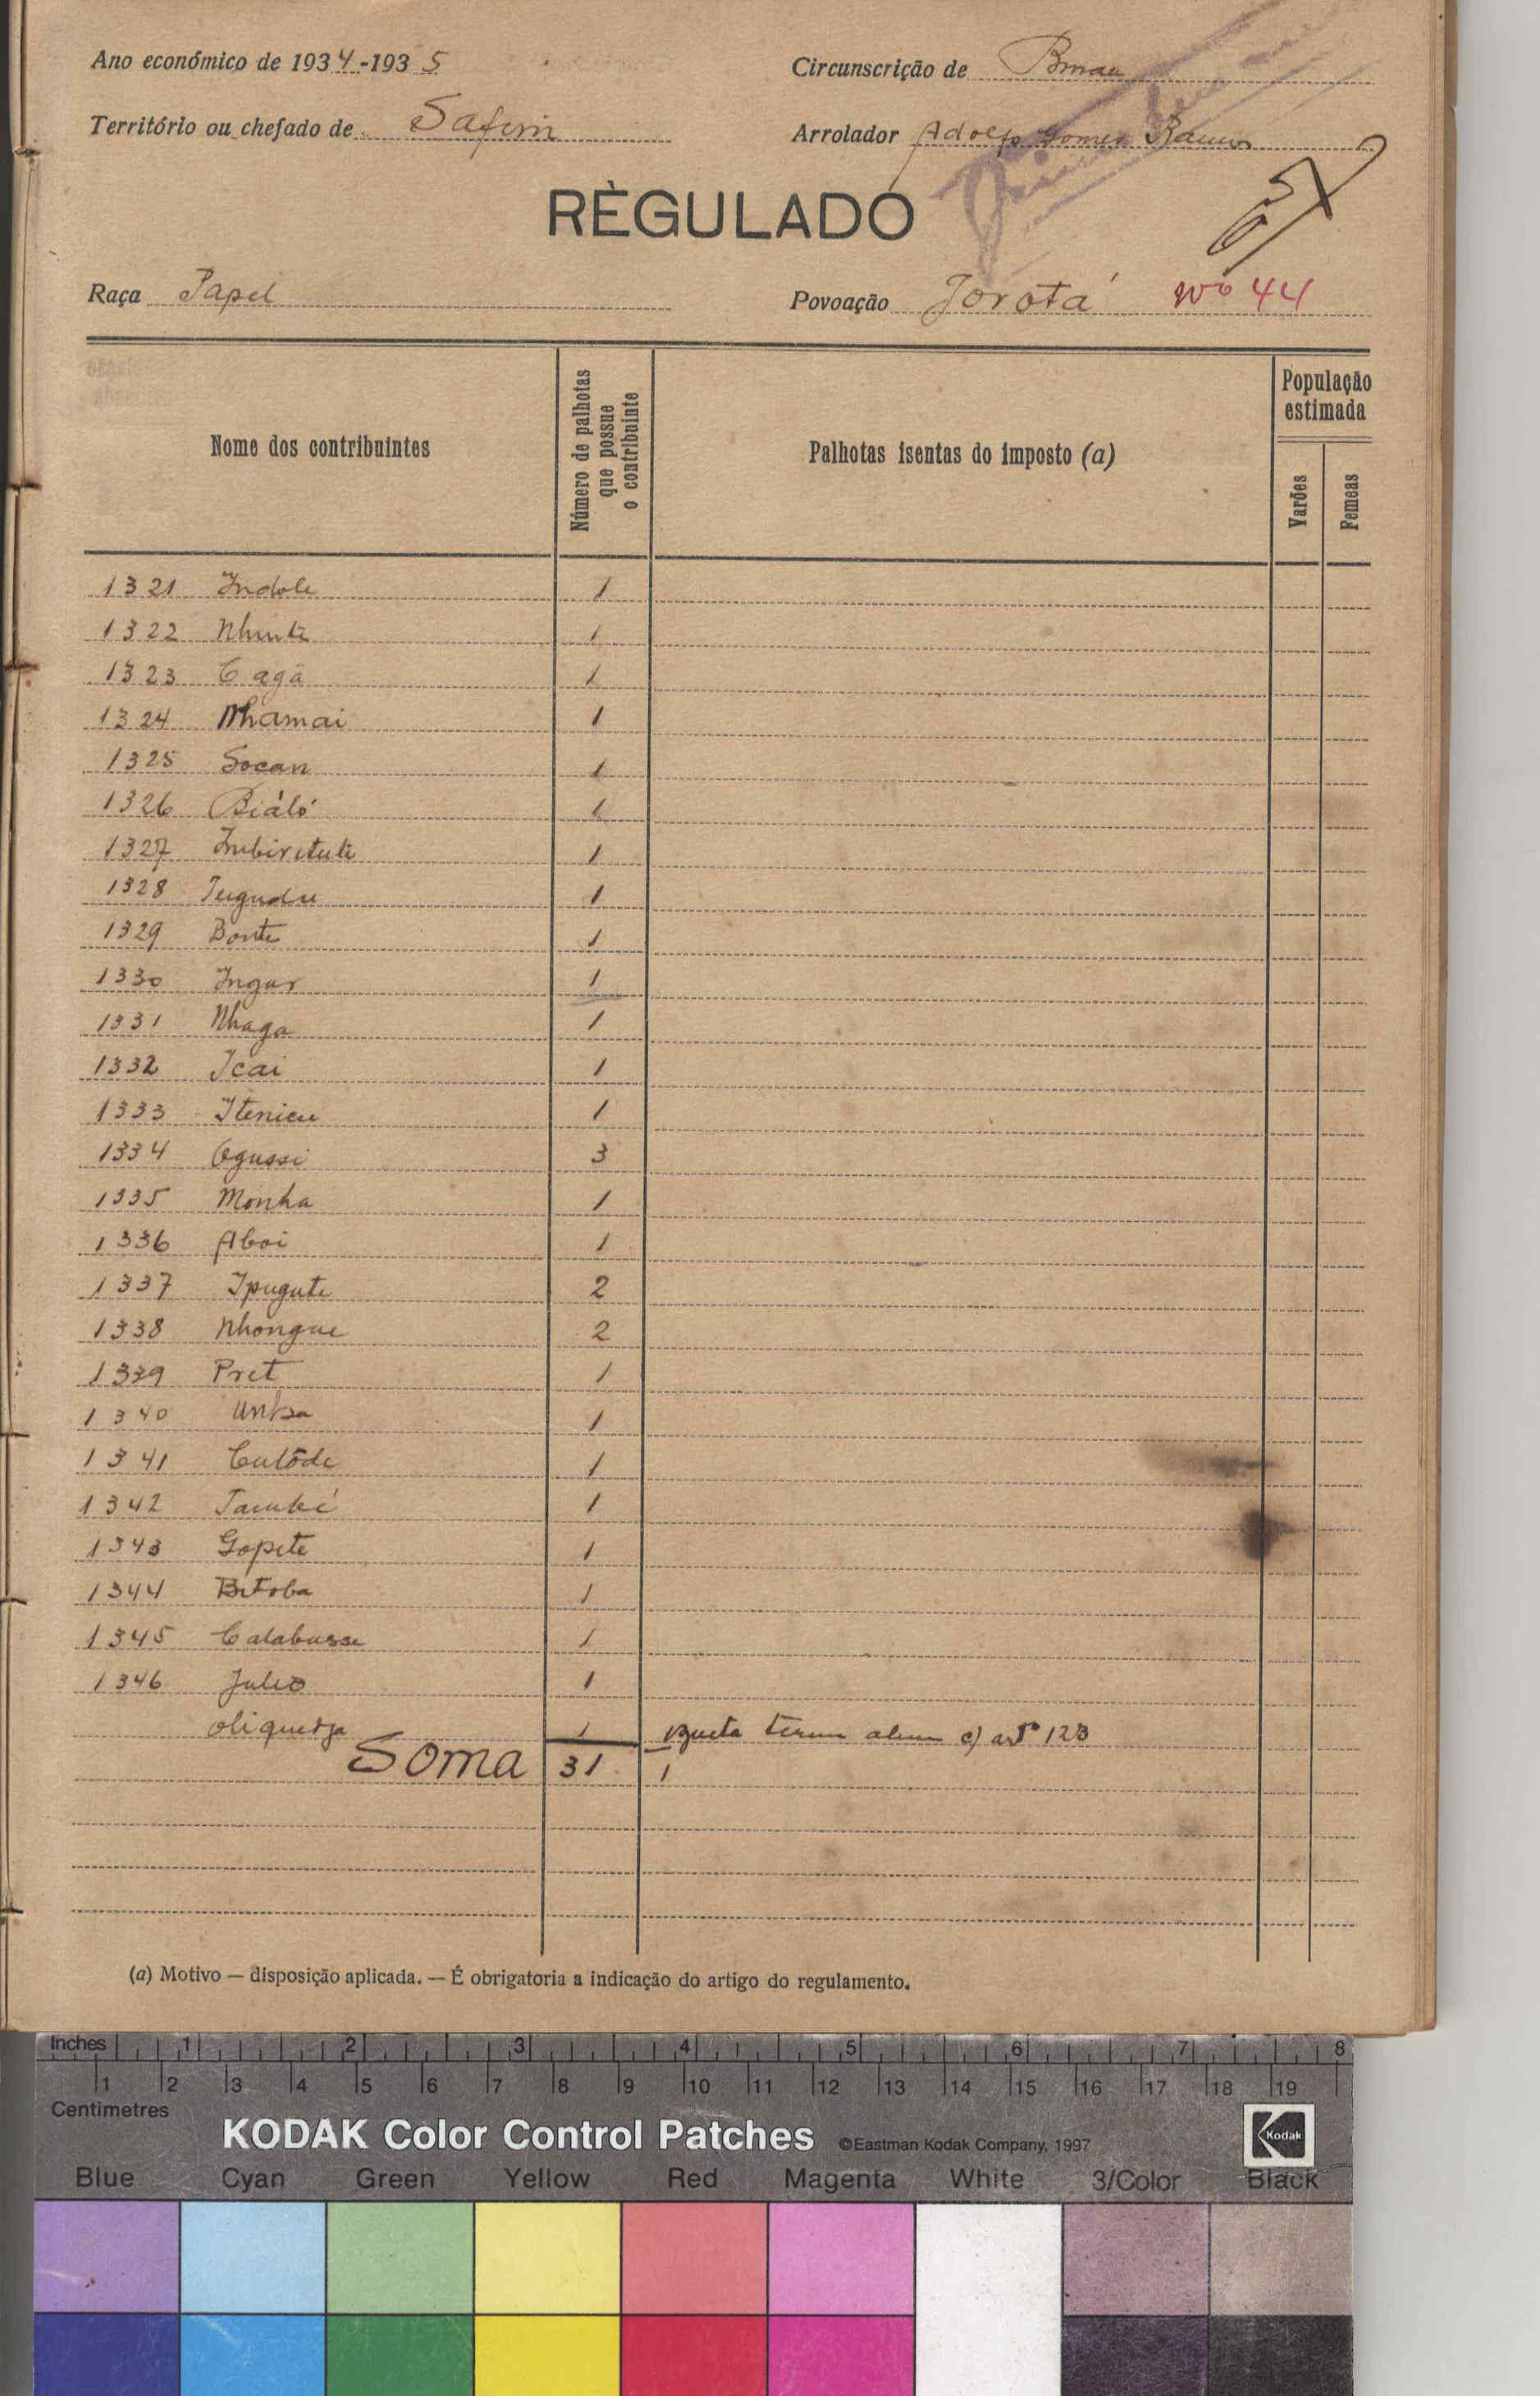 Ano económico de 1934-1935
Circunscrição de
Território ou chefado de Safim
Arrolador Adolfo Gomes Ramos
RÈGULADO
Raça Papel
Povoação Jorotá Nº 44
Nome dos contribuintes
Número de palhotas que possue o contribuinte
Palhotas isentas do imposto (a)
População estimada
Varões
Femeas
1321 Indole 1
1322 Nhunti 1
1323 Cagá 1
1324 Nhamai 1
1325 Socan 1
1326 Biáló 1
1327 1
1328 Tugudu 1
1329 Bonte 1
1330 Ingar 1
1331 Nhaga 1
1332 Icai 1
1333 Itenicu 1
1334 Ogussi 3
1335 Monha 1
1336 Aboi 1
1337 Ipugute 2
1338 Nhongue 2
1339 Pret 1
1340 1
1341 Cutôde 1
1342 1
1343 Gopete 1
1344 Bitoba 1
1345 Calabusse 1
1346 Julio 1
1 alem c) artº 123
Soma 31 1
(a) Motivo — disposição aplicada. — É obrigatoria a indicação do artigo do regulamento.
Inches 1 2 3 4 5 6 7 8
1 2 3 4 5 6 7 8 9 10 11 12 13 14 15 16 17 18 19
Centimetres
KODAK Color Control Patches ©Eastman Kodak Company, 1997 Kodak
Blue Cyan Green Yellow Red Magenta White 3/Color Black